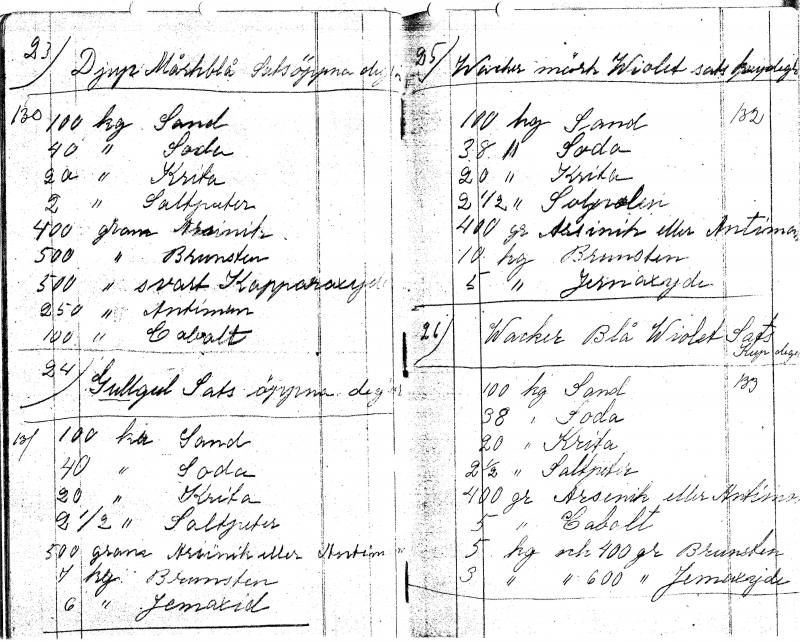 23/ Djup Mörkblå Sats öppna deg
130
100 kg Sand
40 " Soda
20 " Krita
2 " Saltpeter
400 gram Arsinik
500 " Brunsten
500 " svart Kopparoxyd
250 " Antimon
100 " Cabolt
24/ Gullgul Sats öppna deg
131
100 kg Sand
40 " Soda
20 " Krita
2 1/2 " Saltpeter
500 gram Arsinik eller Antim
7 kg Brunsten
6 " Jernoxid
25/ Wacker mörk Wiolet sats
132
100 kg Sand
38 " Soda
20 " Krita
2 1/2 "
400 gr Arsinik eller Antimon
10 kg Brunsten
5 " Jernoxyde
26/ Wacker Blå Wiolet Sats
Kup dege
133
100 kg Sand
38 " Soda
20 " Krita
2 1/2 " Saltpeter
400 gr Arsinik eller Antimon
5 " Cabolt
5 kg och 400 gr Brunsten
3 " " 600 " Jernoxyde